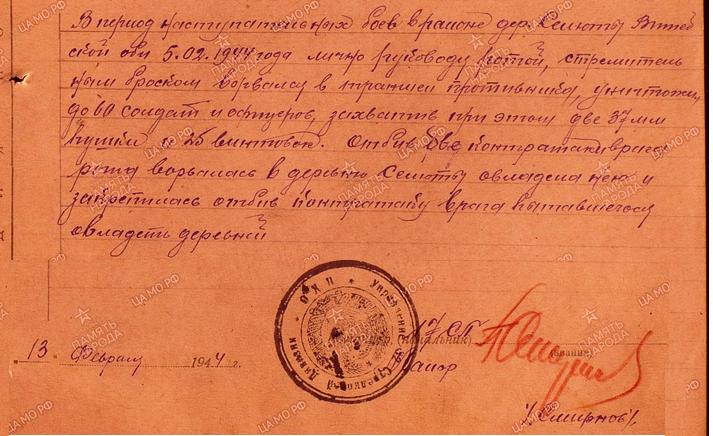 В период наступательных боев в районе дер. Селюты Витеб
ской обл 5.02.1944 года лично руководя ротой, стремитель
ным броском ворвался в траншеи противника, уничтожил
до 60 солдат и офицеров, захватив при этом две 37 мм
пушки и 25 винтовок. Отбив две контратаки врага
рота ворвалась в деревню Селюты овладела нею и
закрепилась отбив контратаку врага пытавшегося
овладеть деревней
17 СП
(начальник)
(звание)
13 Февраля 1944 г.
Майор
/Смирнов/
Управление
Стрелковой Дивизии
Н К О
ПАМЯТЬ НАРОДА
ЦАМО.РФ